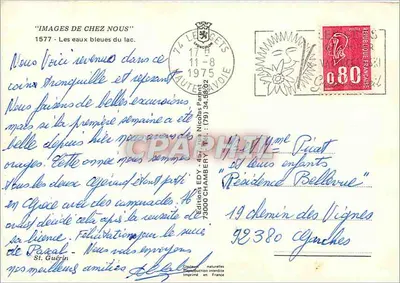 "IMAGES DE CHEZ NOUS"
1577 - Les eaux bleues du lac.
Nous voici revenus dans ce
coin tranquille et reposant
Nous faisons de belles excursions
mais si la première semaine a été
belle depuis hier nous avons des
orages. Cette année nous sommes
tous les deux car sont partis
en Grèce avec des camarades. Ils
ont décidé cela après la réussite de
sa licence. Félicitations pour le succès
de Pascal - Nous vous envoyons
nos meilleures amitiés
St. Guérin
Editions EDY - 
73000 CHAMBERY - Tél. (79) 34.58.02
Couleurs naturelles
Reproduction interdite
Imprimé en France
74 LES GETS
11-8
1975
HAUTE-SAVOIE
0,80
CPAPHIL
M. Mme Picat
et leurs enfants
"Résidence Bellevue"
19 chemin des Vignes
92380 Garches